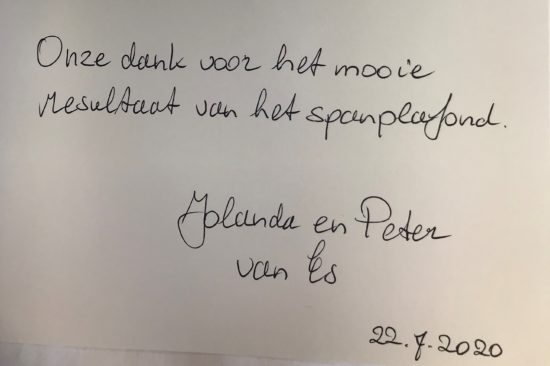 Onze dank voor het mooie
resultaat van het spanplafond.
Yolanda en Peter
van Es
22.7.2020